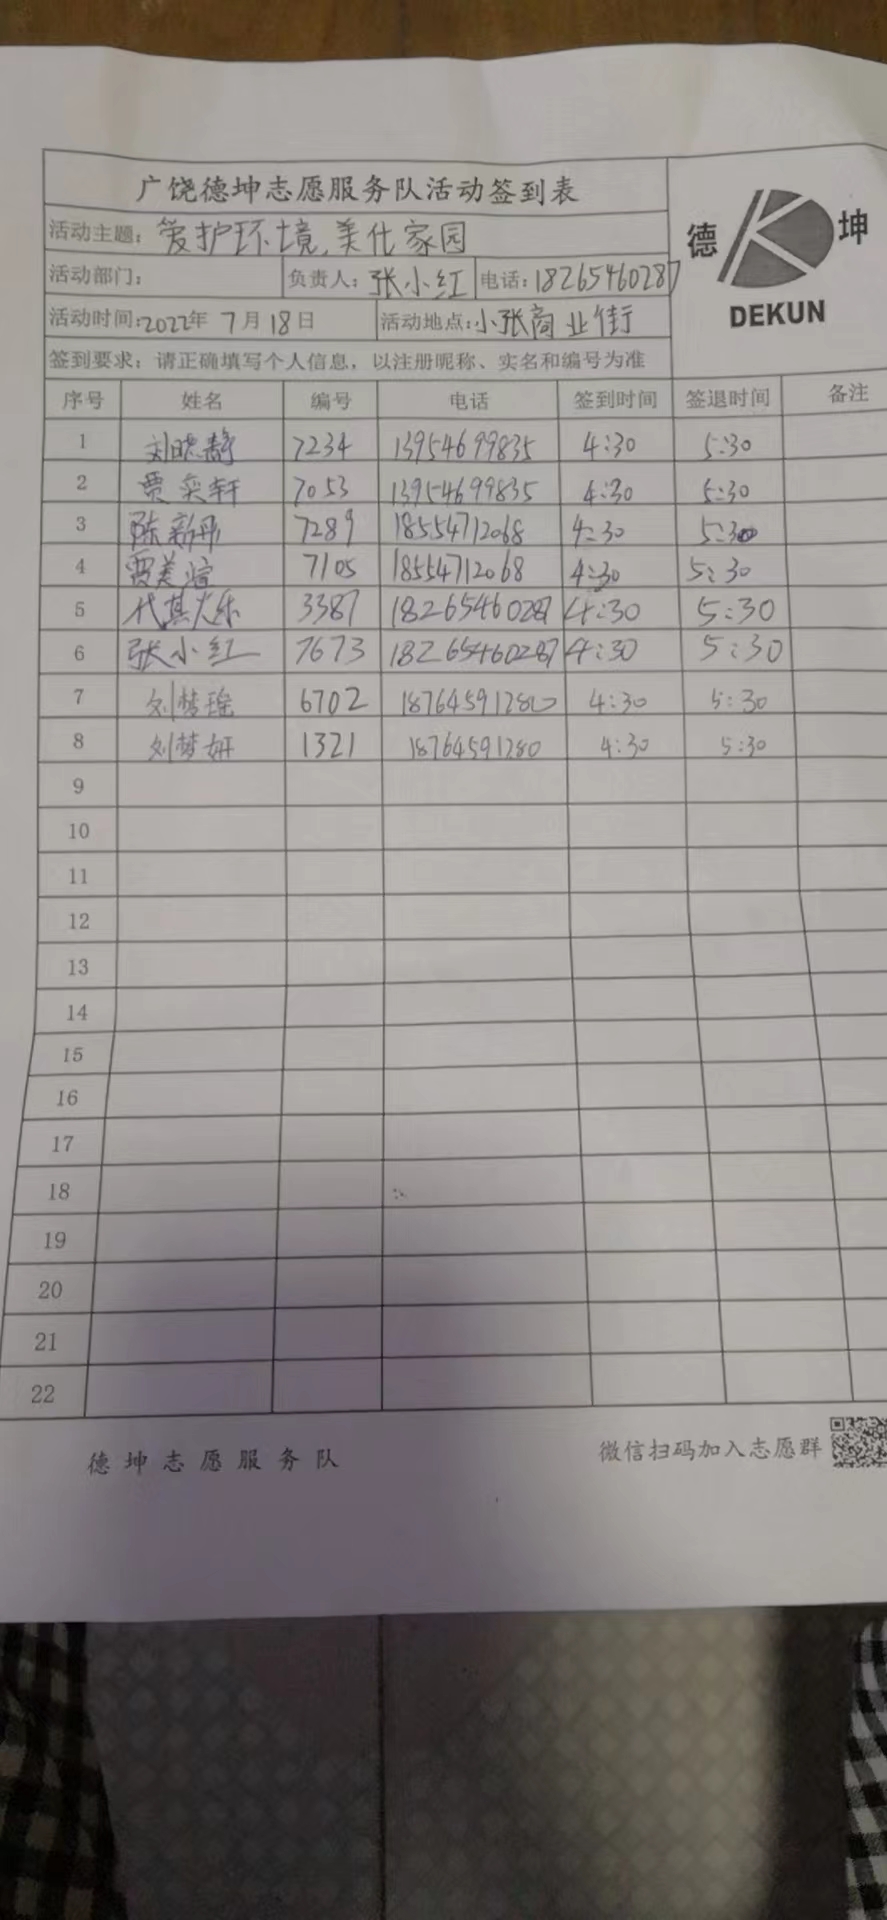 广饶德坤志愿服务队活动签到表
德 坤
DEKUN
活动主题：爱护环境,美化家园
活动部门： 负责人：张小红 电话：18265460287
活动时间：2022年 7月18日 活动地点：小张商业街
签到要求：请正确填写个人信息，以注册昵称、实名和编号为准
序号 姓名 编号 电话 签到时间 签退时间 备注
1 刘晓静 7234 13954699835 4:30 5:30
2 贾奕轩 7053 13954699835 4:30 5:30
3 陈新彤 7289 18554712068 4:30 5:30
4 贾美萱 7105 18554712068 4:30 5:30
5 代其大乐 3387 18265460287 4:30 5:30
6 张小红 7673 18265460287 4:30 5:30
7 刘梦瑶 6702 18764591280 4:30 5:30
8 刘梦妍 1321 18764591280 4:30 5:30
9
10
11
12
13
14
15
16
17
18
19
20
21
22
德坤志愿服务队 微信扫码加入志愿群